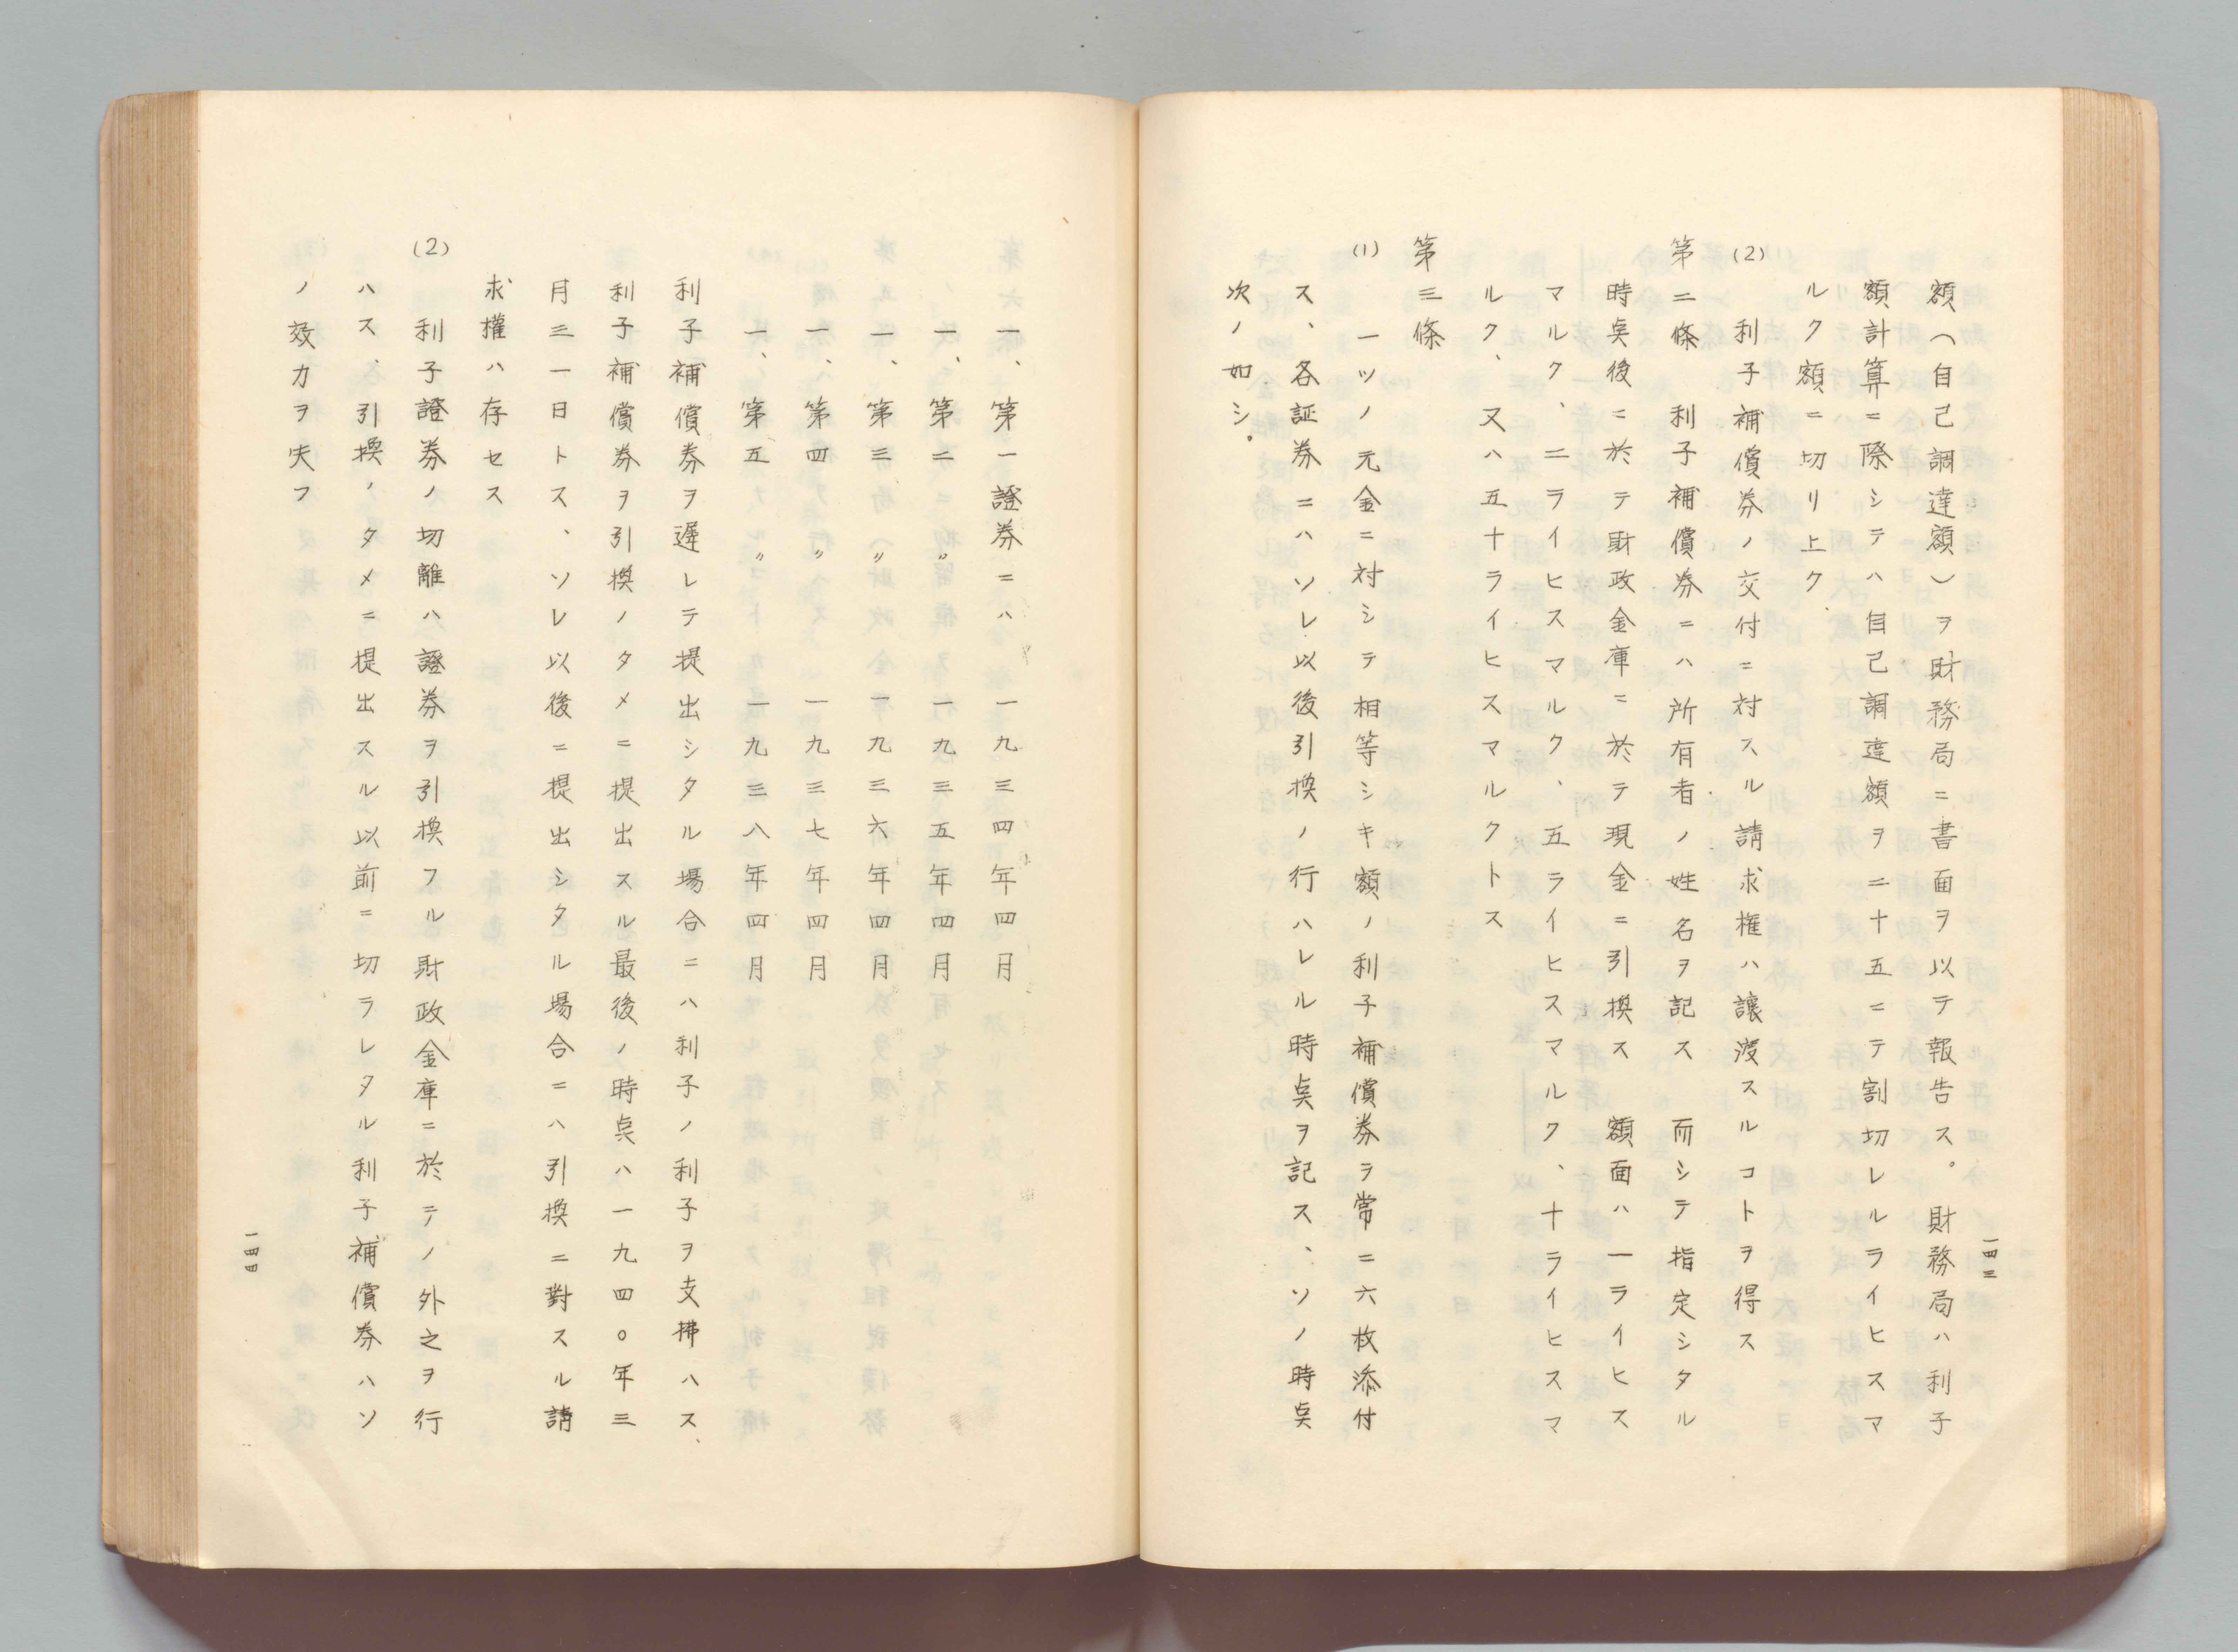 額(自己調達額)ヲ財務局ニ書面ヲ以テ報告ス。財務局ハ利子
額計算ニ際シテハ自己調達額ヲ二十五ニテ割切レルライヒスマ
ルク額ニ切リ上ク
(2) 利子補償券ノ交付ニ対スル請求権ハ讓渡スルコトヲ得ス
第二條 利子補償券ニハ所有者ノ姓名ヲ記ス 而シテ指定シタル
時矣後ニ於テ財政金庫ニ於テ現金ニ引換ス 額面ハ一ライヒス
マルク、二ライヒスマルク、五ライヒスマルク、十ライヒスマ
ルク、又ハ五十ライヒスマルクトス
第三條
(1) 一ツノ元金ニ対シテ相等シキ額ノ利子補償券ヲ常ニ六枚添付
ス、各証券ニハソレ以後引換ノ行ハレル時矣ヲ記ス、ソノ時矣
次ノ如シ。
一四三
一、第一證券ニハ 一九三四年四月
一、第二〃 一九三五年四月
一、第三〃 一九三六年四月
一、第四〃 一九三七年四月
一、第五〃 一九三八年四月
利子補償券ヲ遅レテ提出シタル場合ニハ利子ノ利子ヲ支拂ハス、
利子補償券ヲ引換ノタメニ提出スル最後ノ時矣ハ一九四〇年三
月三一日トス、ソレ以後ニ提出シタル場合ニハ引換ニ對スル請
求權ハ存セス
(2) 利子證券ノ切離ハ證券ヲ引換フル財政金庫ニ於テノ外之ヲ行
ハス、引換ノタメニ提出スル以前ニ切ラレタル利子補償券ハソ
ノ效力ヲ失フ
一四四